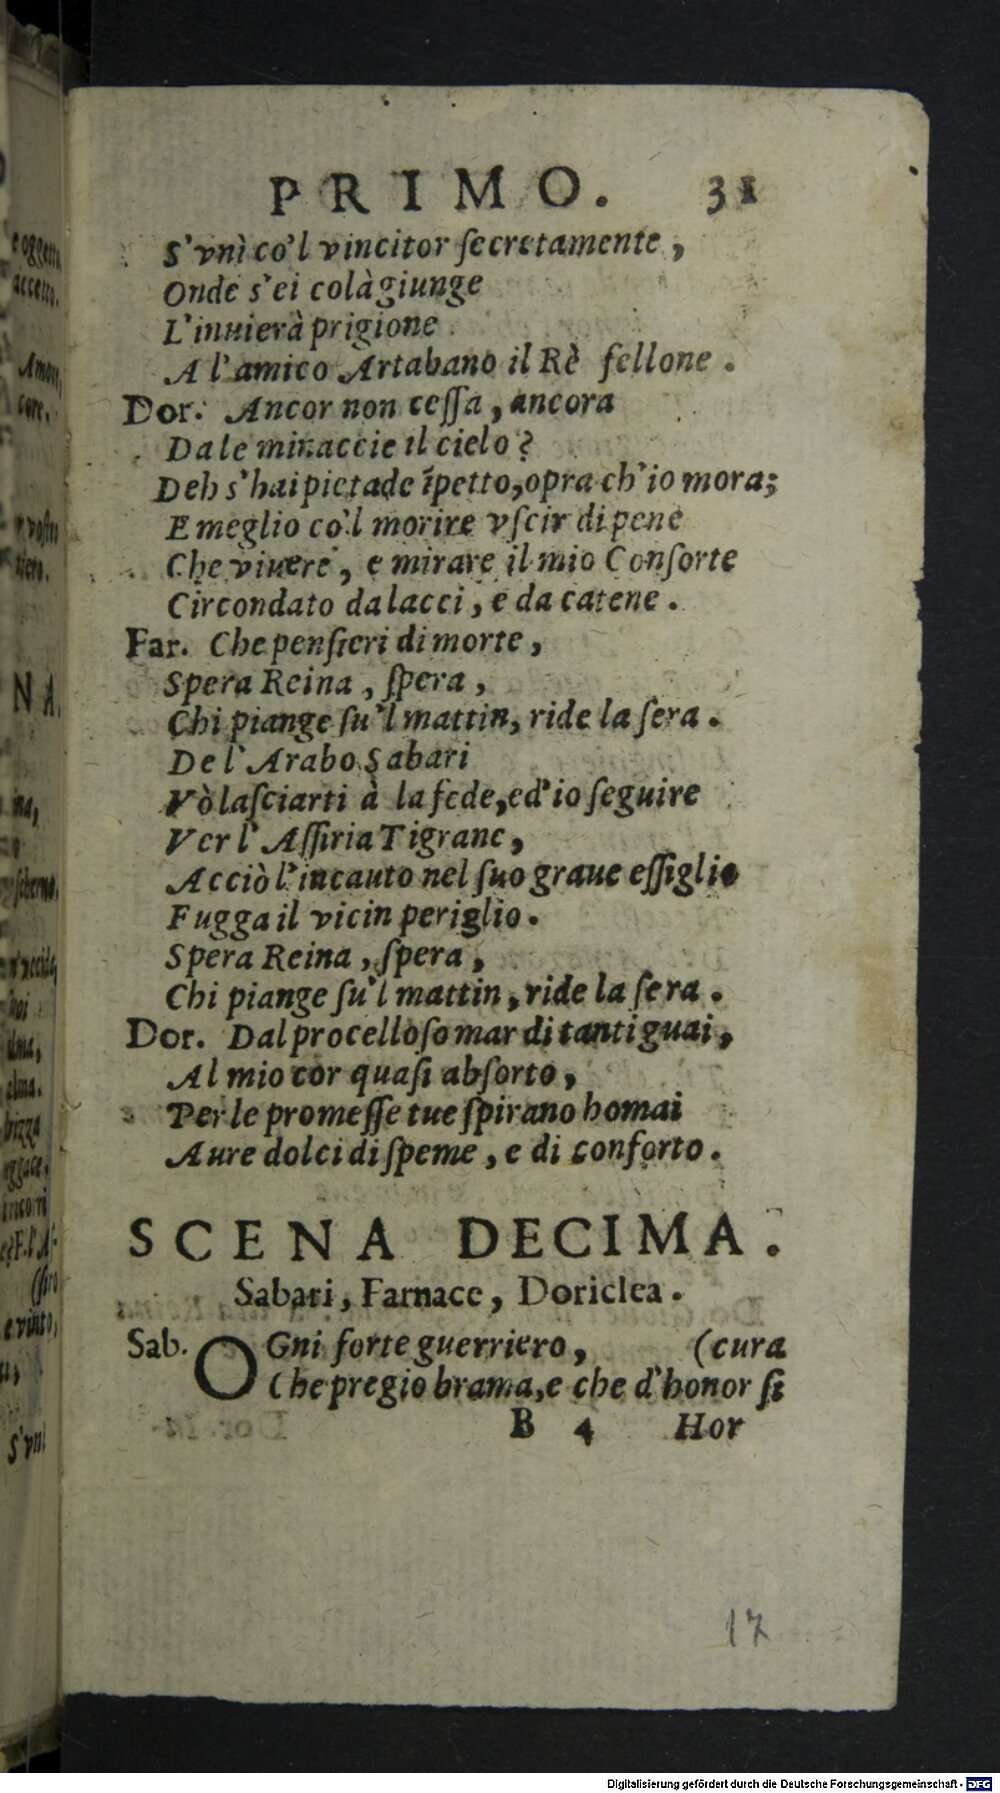 PRIMO. 31
S'vnì co'l vincitor ſecretamente,
Onde s'ei colà giunge
L'inuierà prigione
A l'amico Artabano il Rè fellone.
Dor. Ancor non ceſſa, ancora
Da le minaccie il cielo?
Deh s'hai pietade ĩ petto, opra ch'io mora;
E meglio co'l morire vſcir di pene
Che viuere, e mirare il mio Conſorte
Circondato da lacci, e da catene.
Far. Che penſieri di morte,
Spera Reina, ſpera,
Chi piange ſu'l mattin, ride la ſera.
De l'Arabo Sabari
Vò laſciarti à la fede, ed'io ſeguire
Ver l'Aſſiria Tigrane,
Acciò l'incauto nel ſuo graue eſſiglio
Fugga il vicin periglio.
Spera Reina, ſpera,
Chi piange ſu'l mattin, ride la ſera.
Dor. Dal procelloſo mar di tanti guai,
Al mio cor quaſi abſorto,
Per le promeſſe tue ſpirano homai
Aure dolci di ſpeme, e di conforto.
SCENA DECIMA.
Sabari, Farnace, Doriclea.
Sab. OGni forte guerriero, (cura
Che pregio brama, e che d'honor ſi
B 4 Hor
17
Digitalisierung gefördert durch die Deutsche Forschungsgemeinschaft - DFG